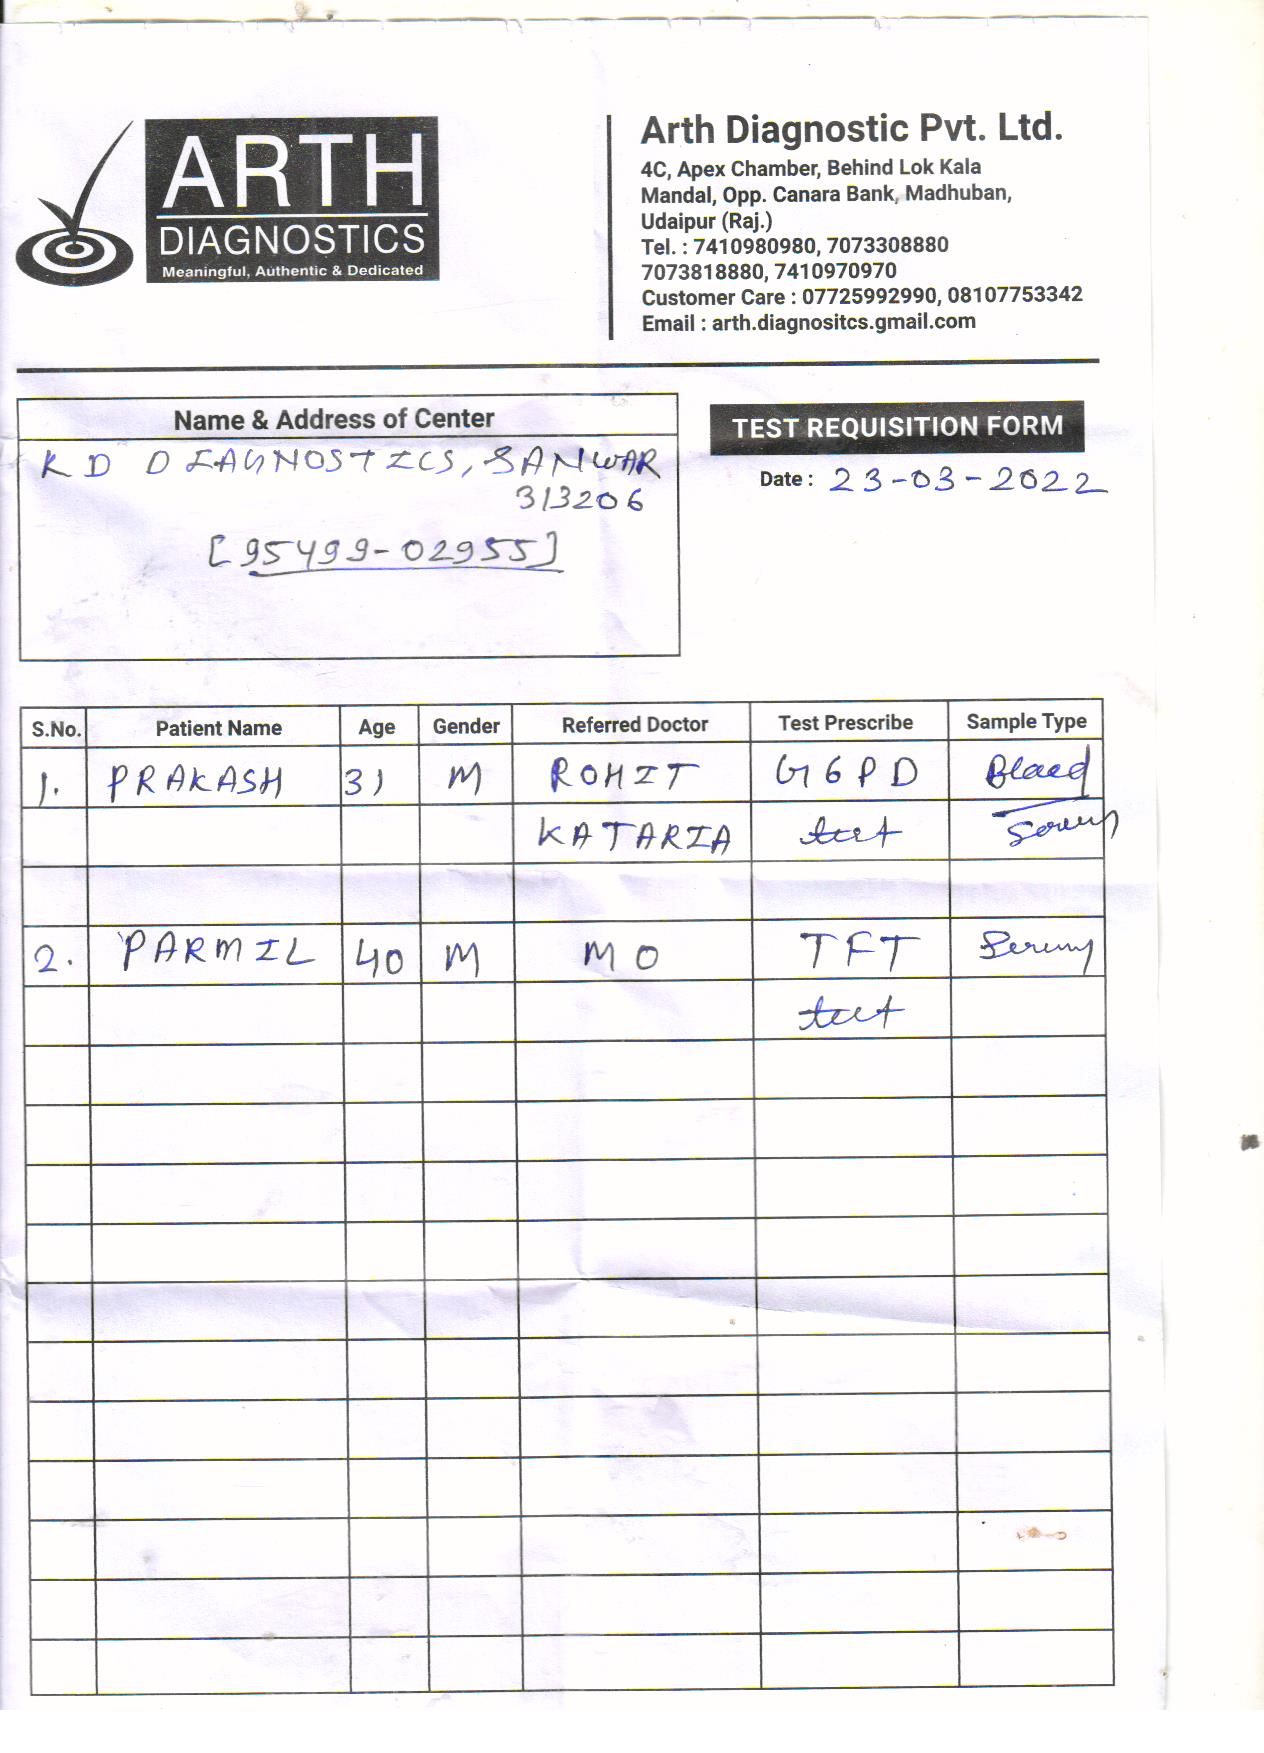 ARTH
DIAGNOSTICS
Meaningful, Authentic & Dedicated
Arth Diagnostic Pvt. Ltd.
4C, Apex Chamber, Behind Lok Kala
Mandal, Opp. Canara Bank, Madhuban,
Udaipur (Raj.)
Tel. : 7410980980, 7073308880
7073818880, 7410970970
Customer Care : 07725992990, 08107753342
Email : arth.diagnositcs.gmail.com
Name & Address of Center
KD DIAGNOSTICS, SANWAR
313206
[95499-02955]
TEST REQUISITION FORM
Date : 23-03-2022
S.No. Patient Name Age Gender Referred Doctor Test Prescribe Sample Type
1. PRAKASH 31 M ROHIT G6PD Blood
KATARIA test Serum
2. PARMIL 40 M MO TFT Serum
test